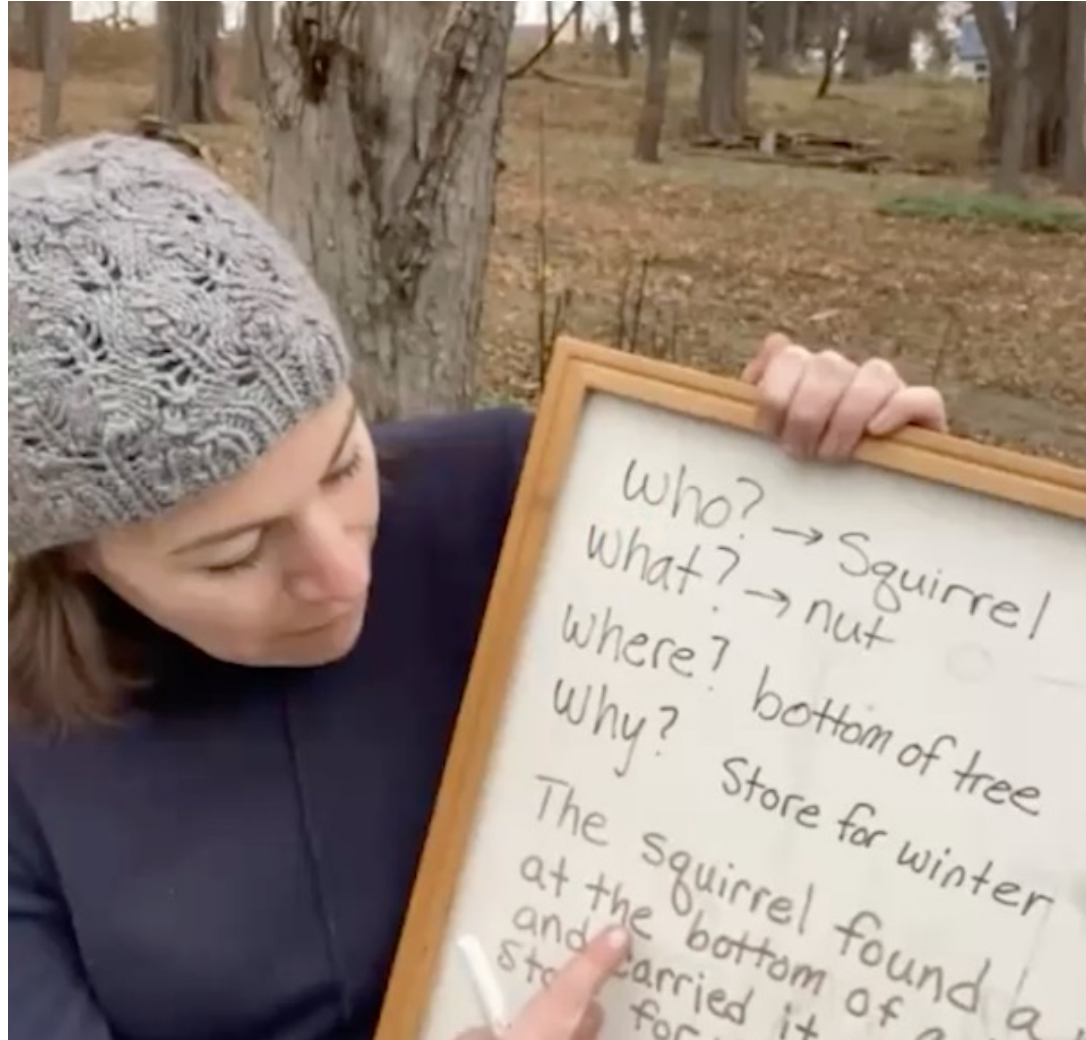 who? → Squirrel
what? → nut
where? bottom of tree
why? Store for winter
The squirrel found a
at the bottom of a
and carried it
for